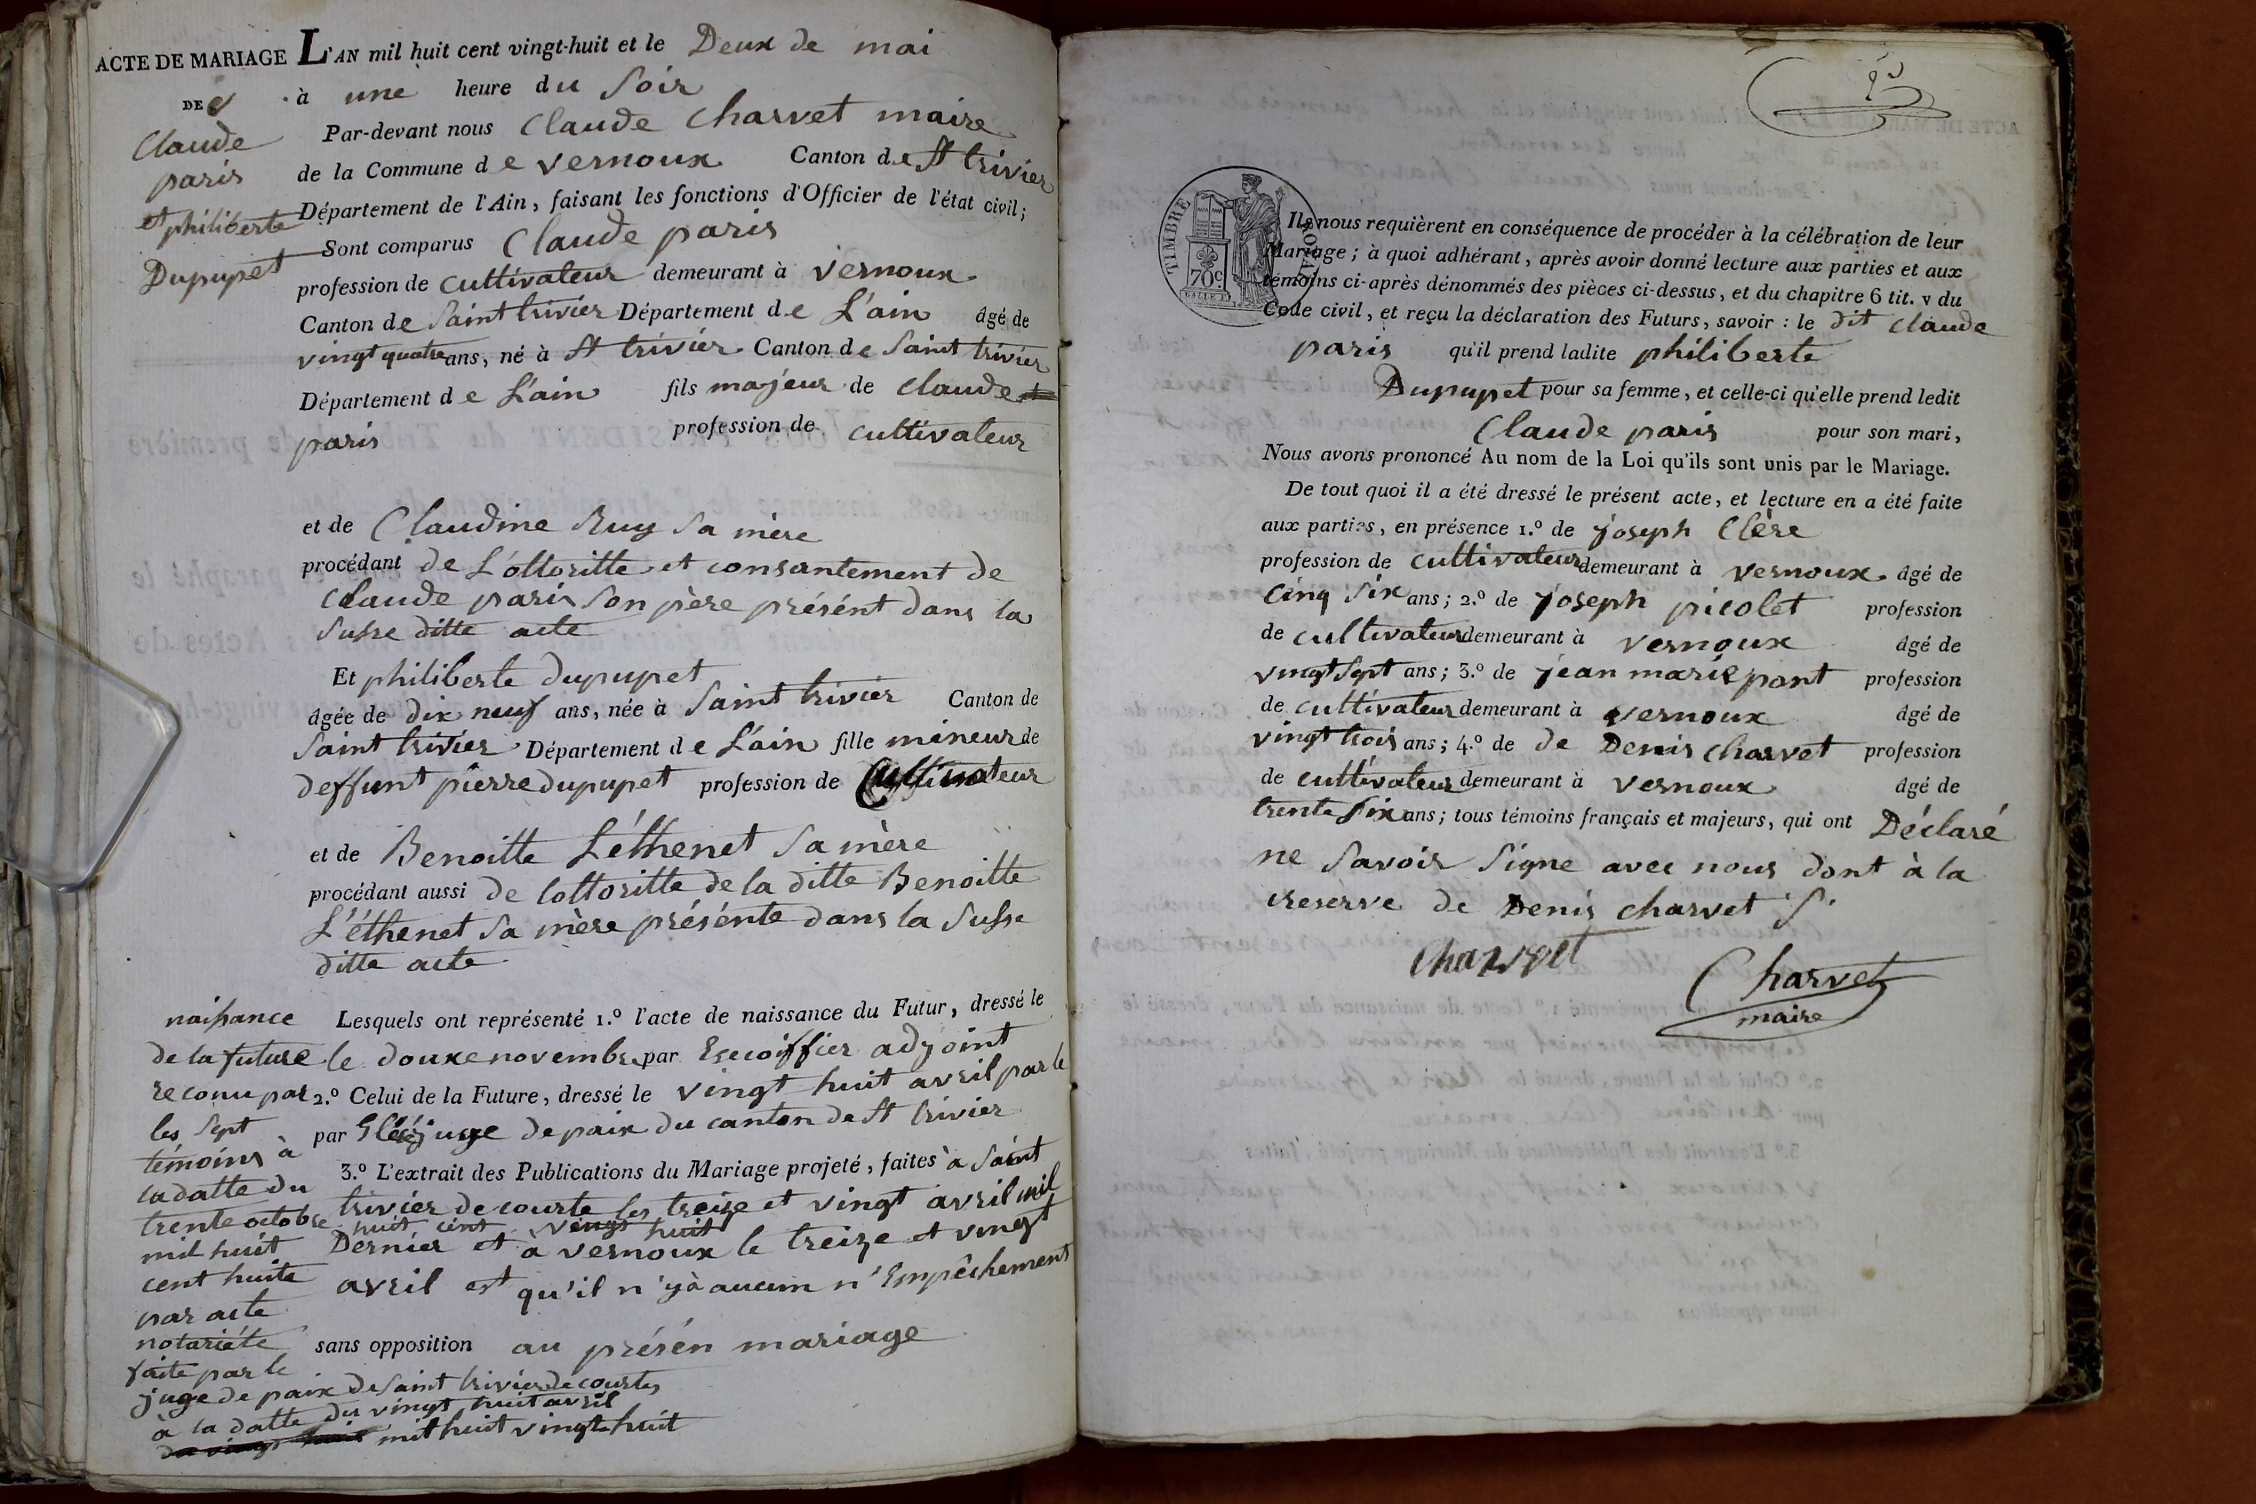 ACTE DE MARIAGE
DE
Claude
paris
et philiberte
Dupupet
L'AN mil huit cent vingt-huit et le Deux de mai
à une heure du Soir
Par-devant nous Claude Charvet maire
de la Commune de vernoux Canton de St trivier
Département de l'Ain, faisant les fonctions d'Officier de l'état civil;
Sont comparus Claude paris
profession de cultivateur demeurant à vernoux
Canton de Saint trivier Département de L'ain âgé de
vingt quatre ans, né à St trivier Canton de Saint trivier
Département de L'ain fils majeur de Claude
paris profession de cultivateur
et de Claudine Ruy Sa mère
procédant de L'ottoritte et consantement de
Claude paris Son père présént dans la
Susse ditte acte
Et philiberte dupupet
âgée de dix neuf ans, née à Saint trivier Canton de
Saint trivier Département de L'ain fille mineur de
deffunt pierre dupupet profession de Cultivateur
et de Benoitte Léthenet Sa mère
procédant aussi de lottoritte de la ditte Benoitte
L'éthenet Sa mère présénte dans la Susse
ditte acte
Lesquels ont représenté 1.º l'acte de naissance du Futur, dressé le
le douxe novembre par Escoiffier adjoint
2.º Celui de la Future, dressé le vingt huit avril par le
par juge de paix du canton de St trivier
3.º L'extrait des Publications du Mariage projeté, faites à Saint
trivier de courte les treize et vingt avril mil
huit cent vingt huit
Dernier et à vernoux le treize et vingt
avril est qu'il n'yà aucun n'Empêchement
sans opposition au présén mariage
naissance
de la future
reconu par
les Sept
témoins à
la datte du
trente octobre
mil huit
cent huite
par acte
notariéte
faite par le
juge de paix de Saint trivier de courtes
à la datte du vingt huit avril
du vingt huit mil huit vingt huit
TIMBRE ROYAL
70c
Ils nous requièrent en conséquence de procéder à la célébration de leur
Mariage; à quoi adhérant, après avoir donné lecture aux parties et aux
témoins ci-après dénommés des pièces ci-dessus, et du chapitre 6 tit. v du
Code civil, et reçu la déclaration des Futurs, savoir : le dit Claude
paris qu'il prend ladite philiberte
Dupupet pour sa femme, et celle-ci qu'elle prend ledit
Claude paris pour son mari,
Nous avons prononcé Au nom de la Loi qu'ils sont unis par le Mariage.
De tout quoi il a été dressé le présent acte, et lecture en a été faite
aux parties, en présence 1.º de joseph Clère
profession de cultivateur demeurant à vernoux âgé de
Cinq Six ans; 2.º de joseph picolet profession
de cultivateur demeurant à vernoux âgé de
vingt Sept ans; 3.º de jean marie pont profession
de cultivateur demeurant à vernoux âgé de
vingt trois ans; 4.º de de Denis charvet profession
de cultivateur demeurant à vernoux âgé de
trente Six ans; tous témoins français et majeurs, qui ont Déclaré
ne Savoir Signe avec nous dont à la
reserve de Denis charvet S.
Charvet
Charvet
maire